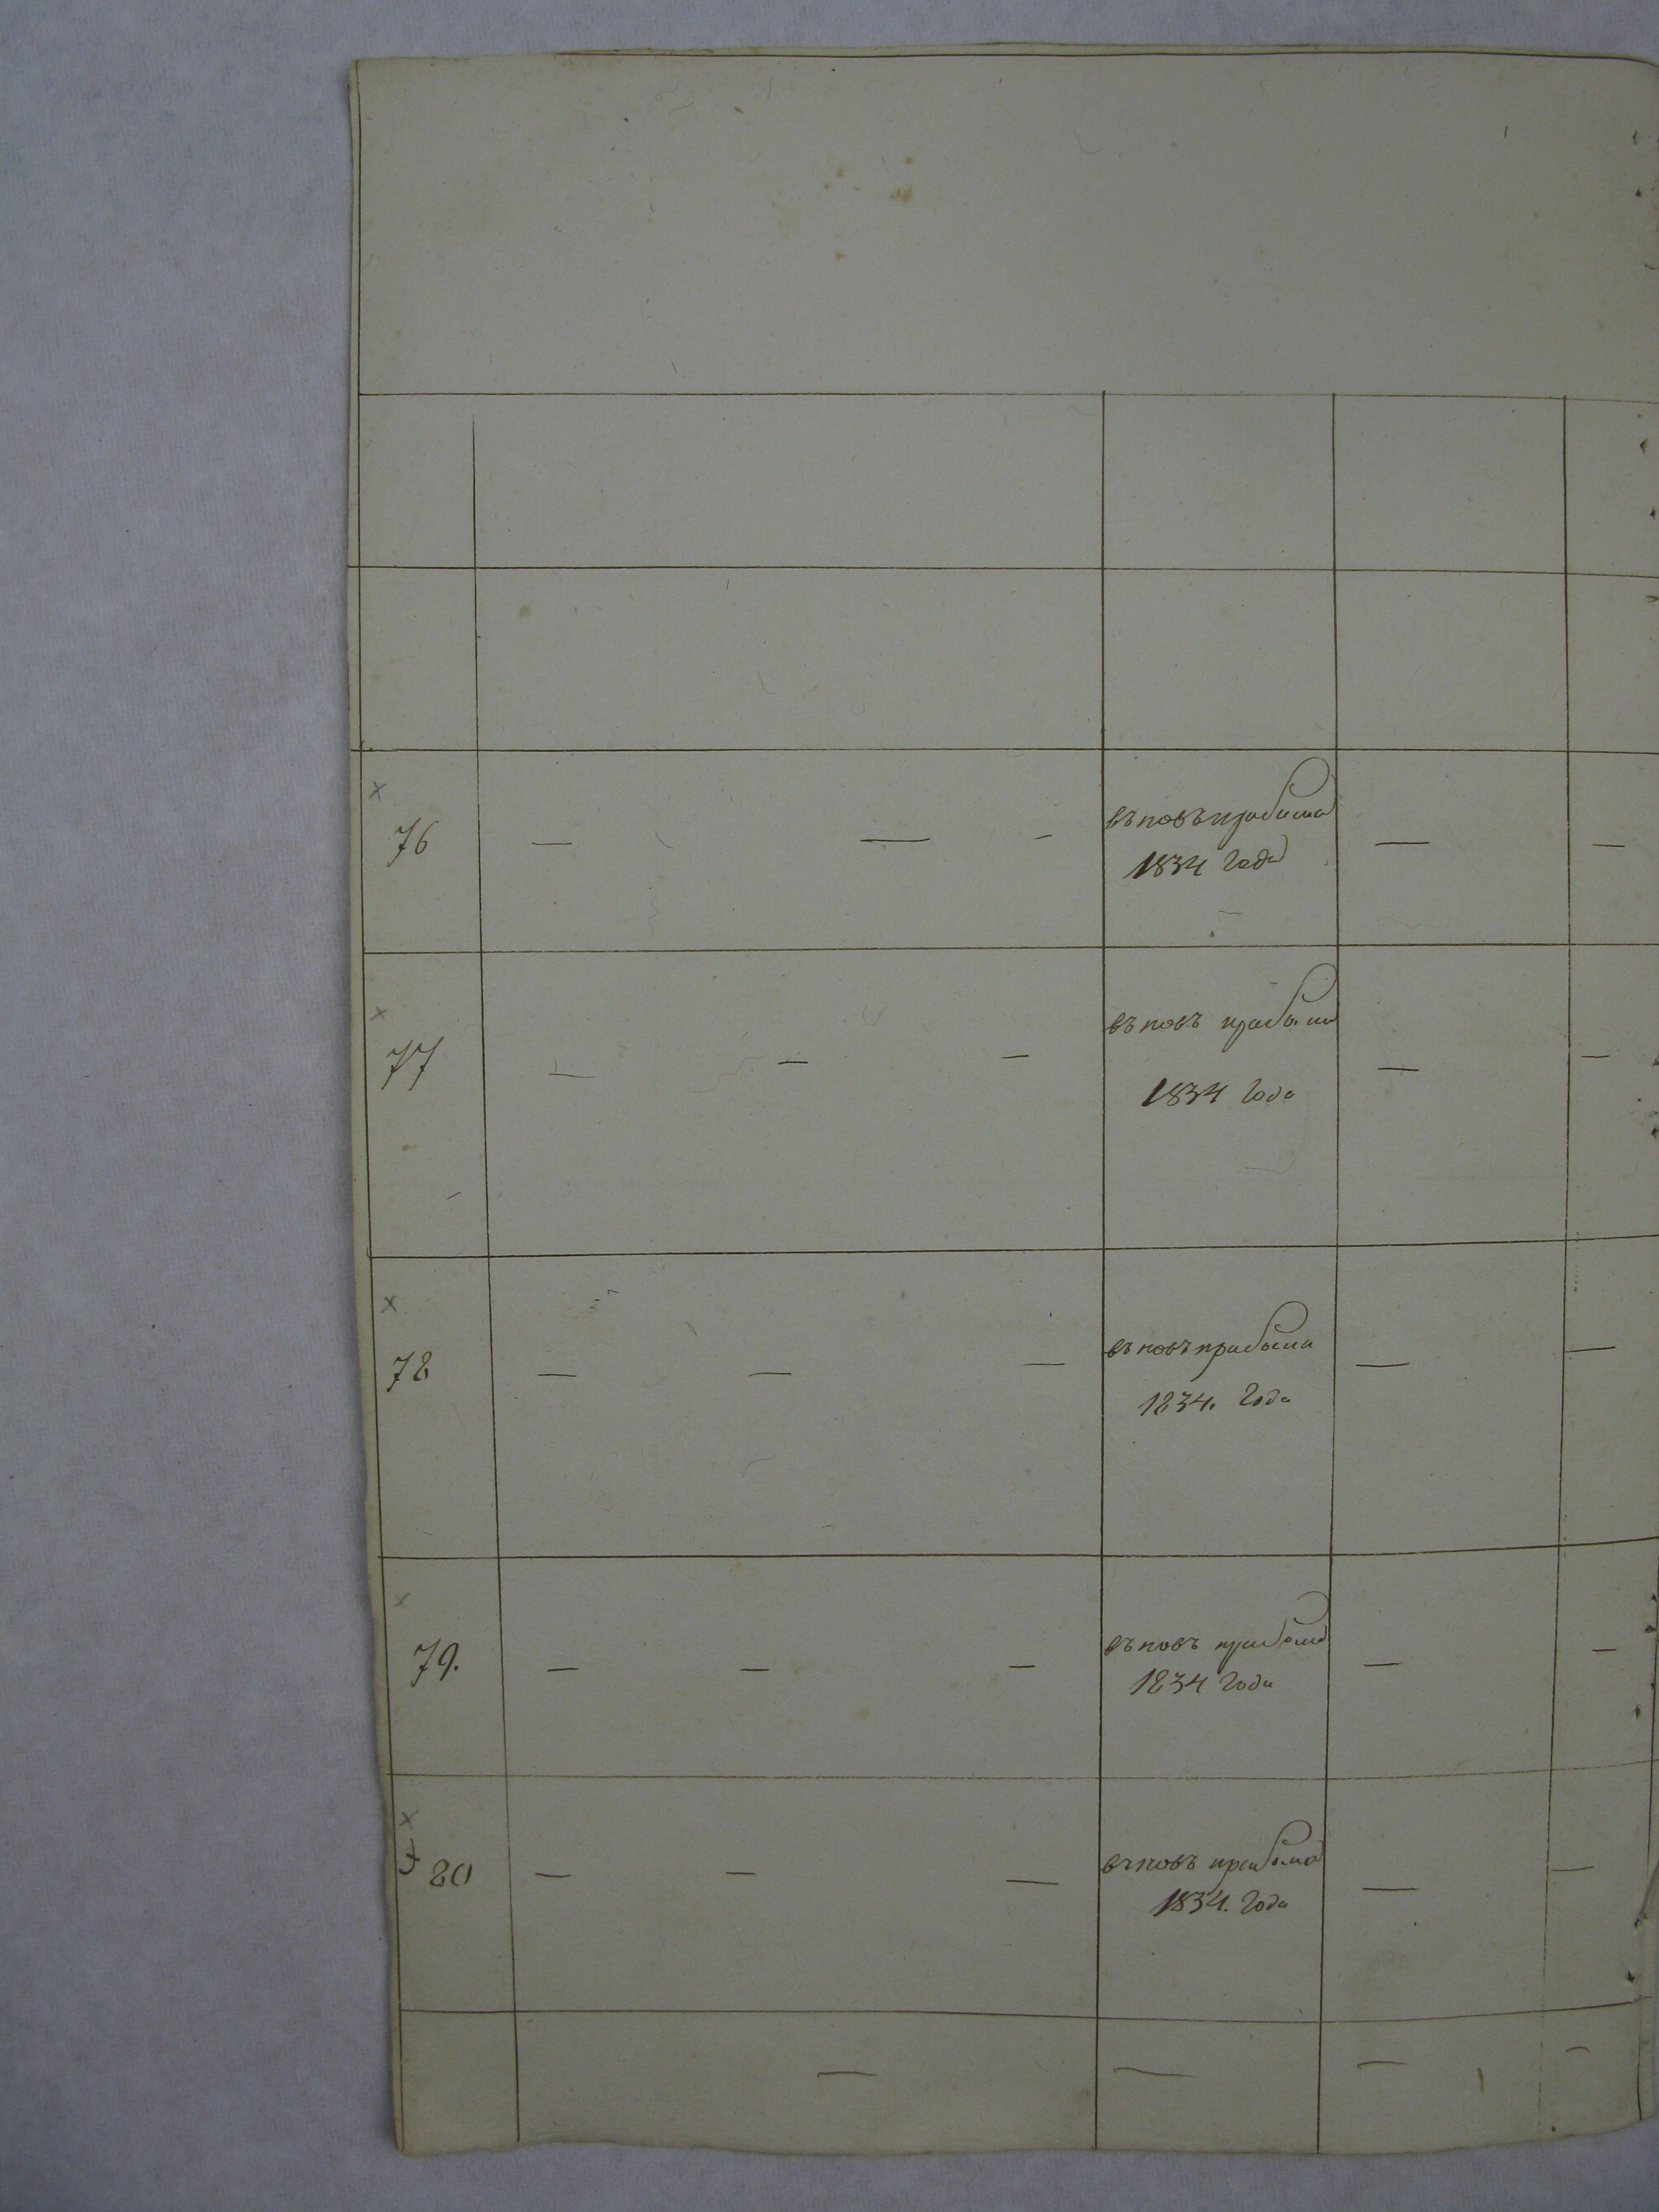 76 — — - въ новъ прибыла —  —
1834 года
77 — — — въ новъ прибыла — —
1834 года
78 — — — въ новъ прибыла — —
1834. года
79. — — — въ новъ прибыла — —
1834 года
80 — — — въ новъ прибыла — —
1834. года
— — — —